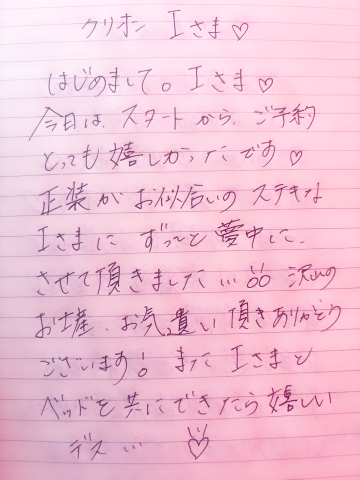 クリオン Iさま♡
はじめまして。Iさま♡
今日は、スタートから、ご予約
とっても嬉しかったです♡
正装がお似合いのステキな
Iさまにずっ〜と夢中に、
させて頂きました… 沢山の
お土産、お気遣い頂きありがとう
ございます! またIさまと
ベッドを共にできたら嬉しい
デス…♡